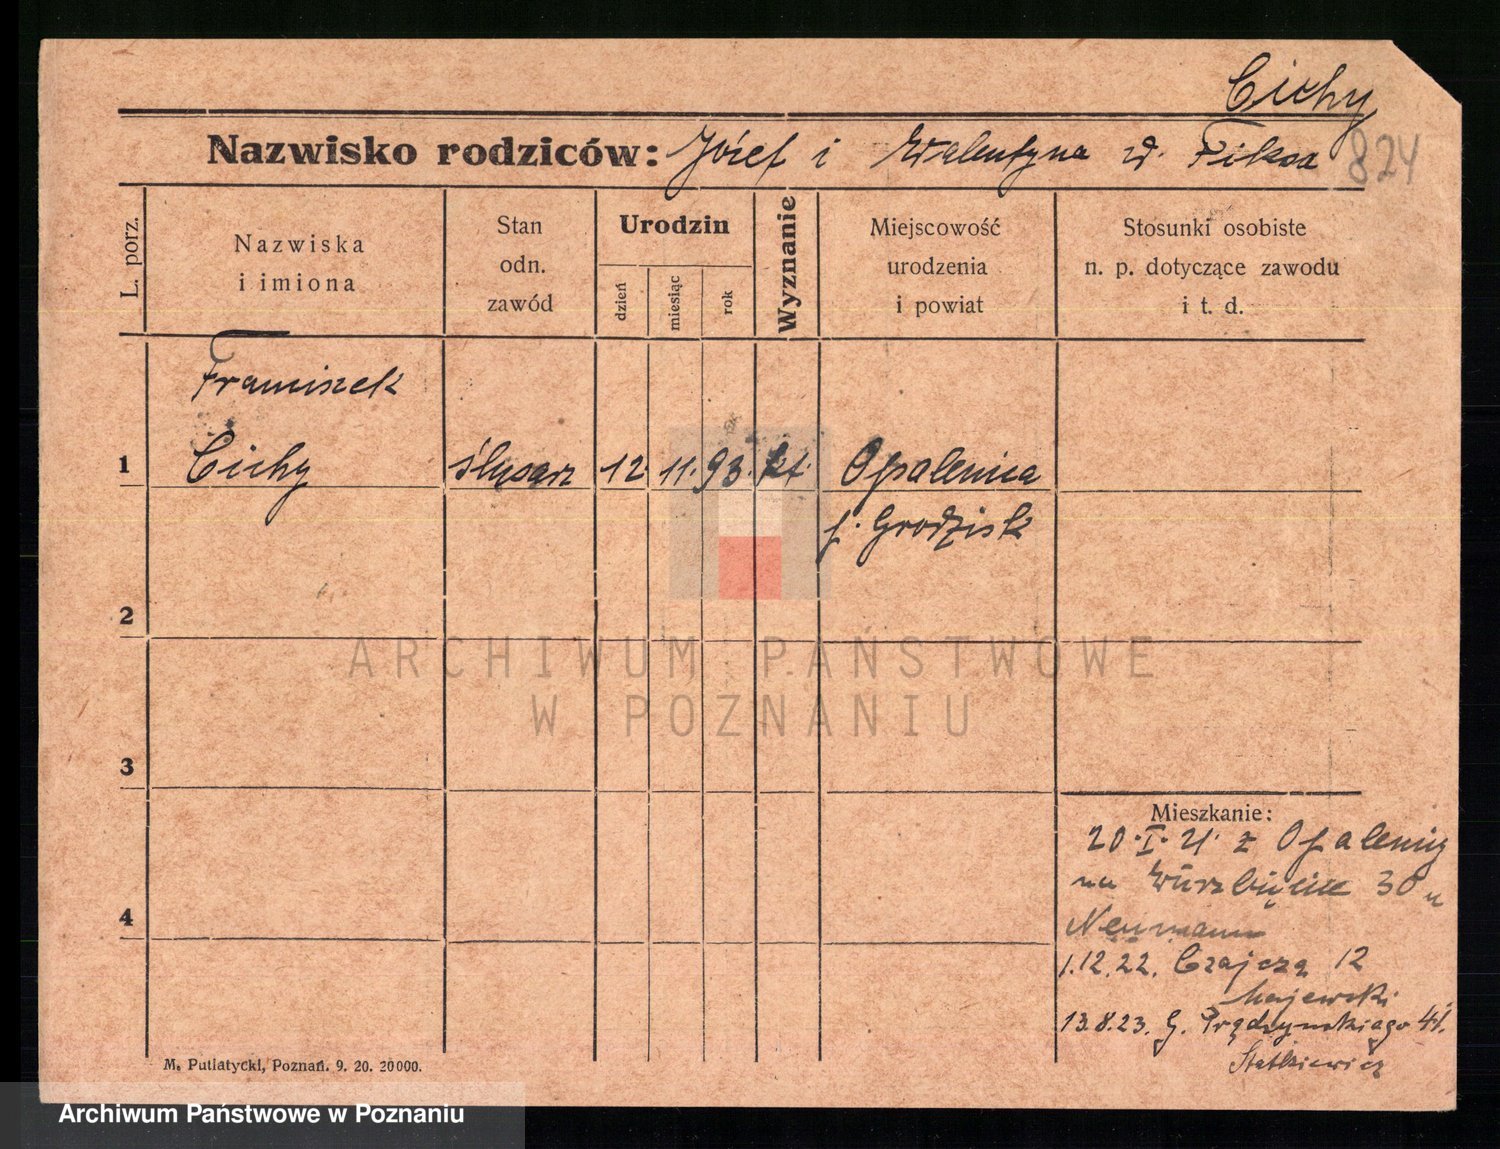 Cichy
Nazwisko rodziców: Józef i Walentyna z d. Fiksa 824
L. porz.
Nazwiska
i imiona
Stan
odn.
zawód
Urodzin
dzień
miesiąc
rok
Wyznanie
Miejscowość
urodzenia
i powiat
Stosunki osobiste
n. p. dotyczące zawodu
i t. d.
Franciszek
1 Cichy ślusarz 12. 11. 93. kt. Opalenica
p. Grodzisk
2
3
4
Mieszkanie:
20.I.21. z Opalenicy
na 30 u
Neumann
1.12.22. Czajcza 12
Majewski
13.8.23. G. Prądzyńskiego 41.
Statkiewicz
M. Putiatycki, Poznań. 9. 20. 20000.
ARCHIWUM PAŃSTWOWE
W POZNANIU
Archiwum Państwowe w Poznaniu